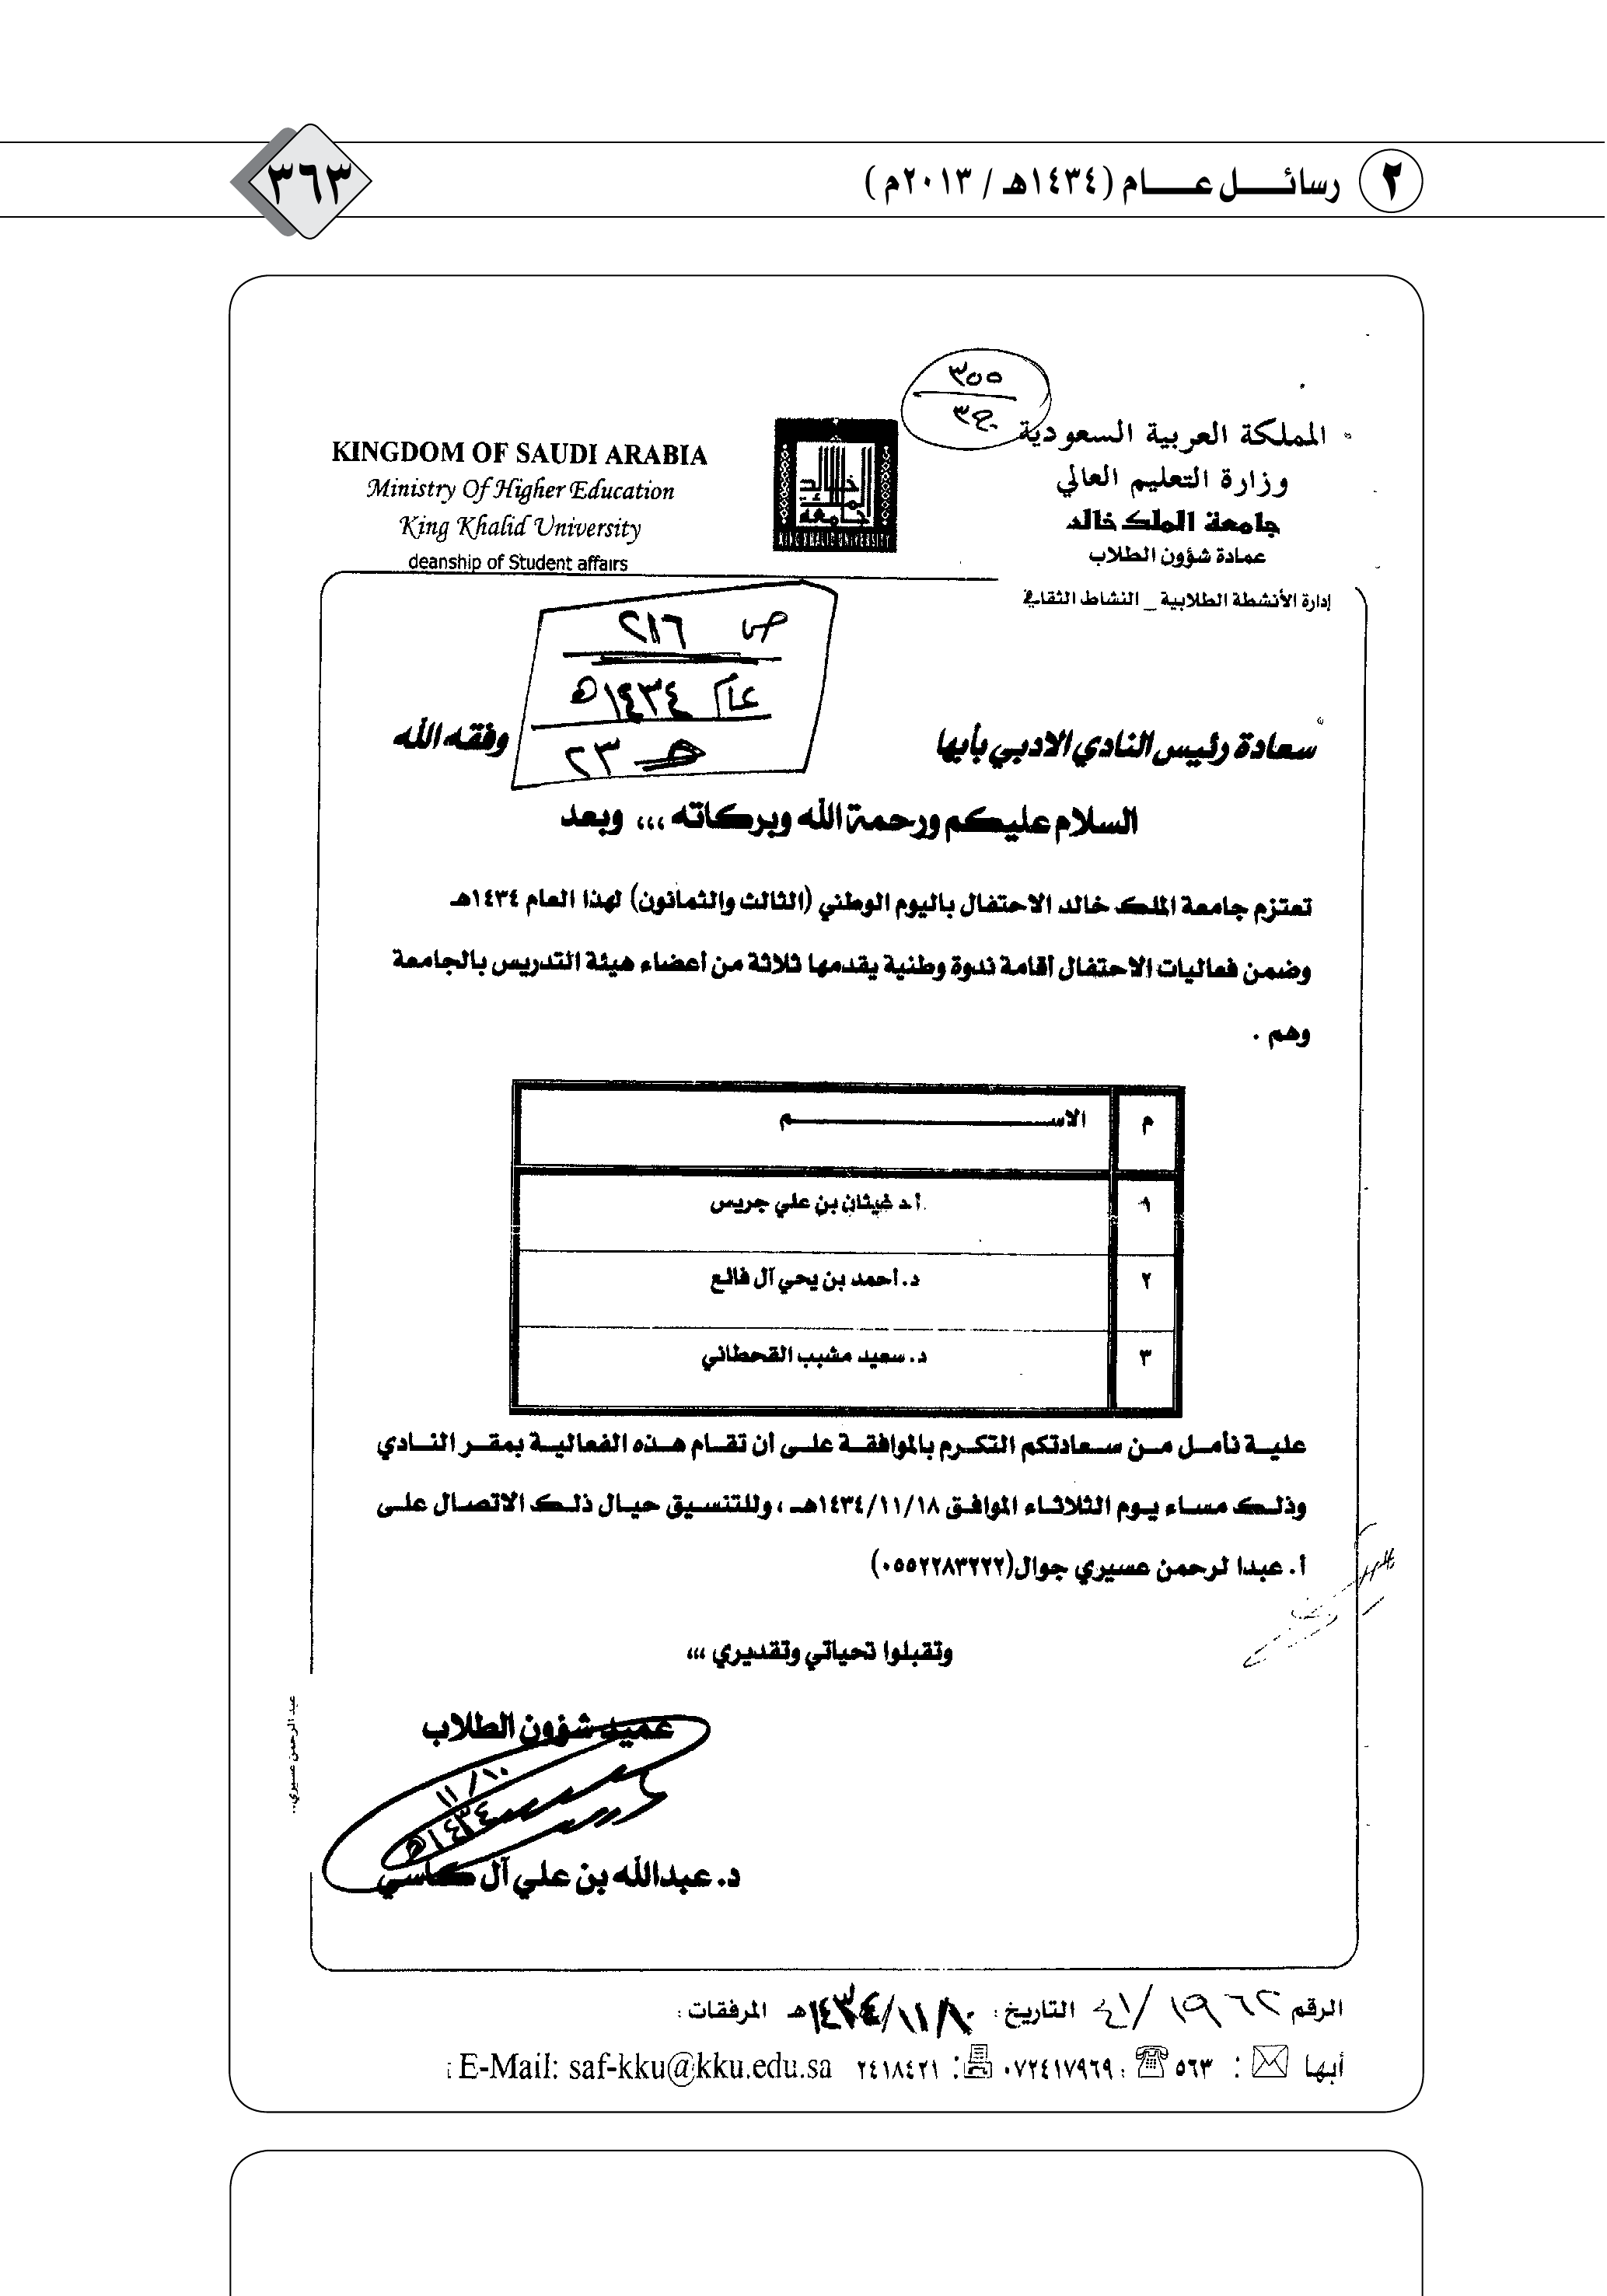 ٢ رسائــل عــام (١٤٣٤هـ / ٢٠١٣م)
٣٦٣
٣٥٥
المملكة العربية السعودية
وزارة التعليم العالي
جامعة الملك خالد
عمادة شؤون الطلاب
إدارة الأنشطة الطلابية _ النشاط الثقافي
KINGDOM OF SAUDI ARABIA
Ministry Of Higher Education
King Khalid University
deanship of Student affairs
خالد
الملك
جامعة
KING KHALID UNIVERSITY
ص ٢١٦
عام ١٤٣٤هـ
سعادة رئيس النادي الادبي بأبها وفقه الله
السلام عليكم ورحمة الله وبركاته ،،، وبعد
تعتزم جامعة الملك خالد الاحتفال باليوم الوطني (الثالث والثمانون) لهذا العام ١٤٣٤هـ
وضمن فعاليات الاحتفال أقامة ندوة وطنية يقدمها ثلاثة من أعضاء هيئة التدريس بالجامعة
وهم .
م الاســــــم
١ أ.د غيثان بن علي جريس
٢ د. أحمد بن يحي آل فائع
٣ د. سعيد مشبب القحطاني
علية نأمل من سعادتكم التكرم بالموافقة على أن تقام هذه الفعالية بمقر النادي
وذلك مساء يوم الثلاثاء الموافق ١٤٣٤/١١/١٨هـ ، وللتنسيق حيال ذلك الاتصال على
أ. عبدا لرحمن عسيري جوال(٠٥٥٢٢٨٣٢٢٢)
وتقبلوا تحياتي وتقديري ،،،
عميد شؤون الطلاب
١١/١٠
١٤٣٤هـ
د. عبدالله بن علي آل كاسي
عبد الرحمن عسيري..
الرقم التاريخ : ١٤٣٤/١١/١٠هـ المرفقات :
أبها : ٥٦٣ : ٠٧٢٤١٧٩٦٩ : ٢٤١٨٤٢١ E-Mail: saf-kku@kku.edu.sa